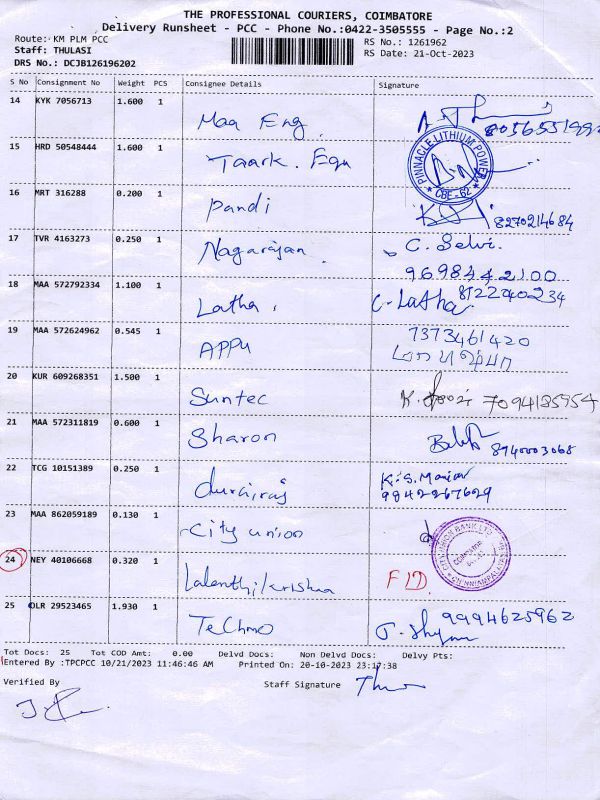 THE PROFESSIONAL COURIERS, COIMBATORE
Delivery Runsheet - PCC - Phone No.:0422-3505555 - Page No.:2
Route: KM PLM PCC
RS No.: 1261962
Staff: THULASI
RS Date: 21-Oct-2023
DRS No.: DCJB126196202
S No Consignment No Weight PCS Consignee Details Signature
14 KYK 7056713 1.600 1 Maa Eng.
15 HRD 50548444 1.600 1 Taark. Equ
PINNACLE LITHIUM POWER
CBE-62
16 MRT 316288 0.200 1 Pandi 8270214684
17 TVR 4163273 0.250 1 Nagarajan. C. Selvi.
9698442100
18 MAA 572792334 1.100 1 Latha. C. Latha 8122240234
19 MAA 572624962 0.545 1 APPU 7373461420
20 KUR 609268351 1.500 1 Suntec K. 7094185954
21 MAA 572311819 0.600 1 Sharon 8940003068
22 TCG 10151389 0.250 1 durairaj K.S.
9842267629
23 MAA 862059189 0.130 1 City union
24 NEY 40106668 0.320 1
25 DLR 29523465 1.930 1 Techno 9994625962
Tot Docs: 25 Tot COD Amt: 0.00 Delvd Docs: Non Delvd Docs: Delvy Pts:
Entered By :TPCPCC 10/21/2023 11:46:46 AM Printed On: 20-10-2023 23:17:38
Verified By Staff Signature